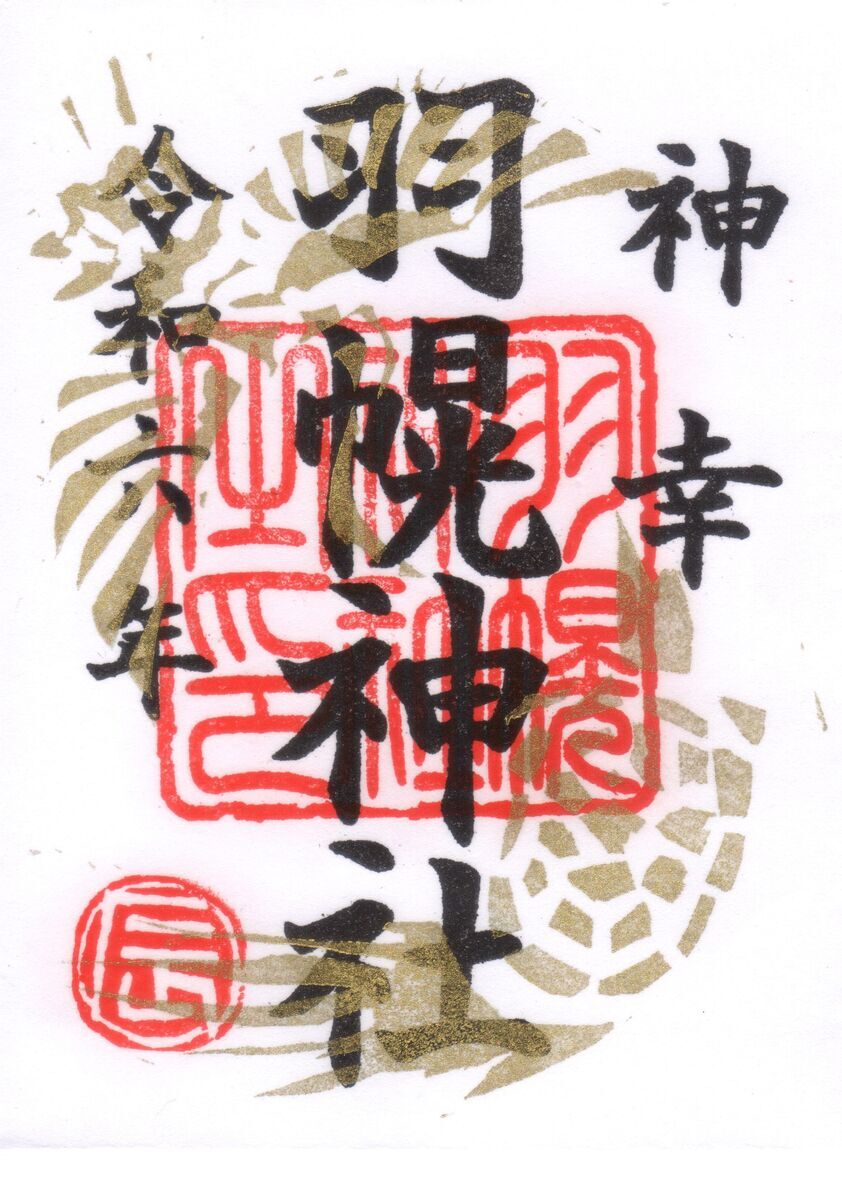 神幸
羽幌神社
令和六年
羽幌神社之印
辰